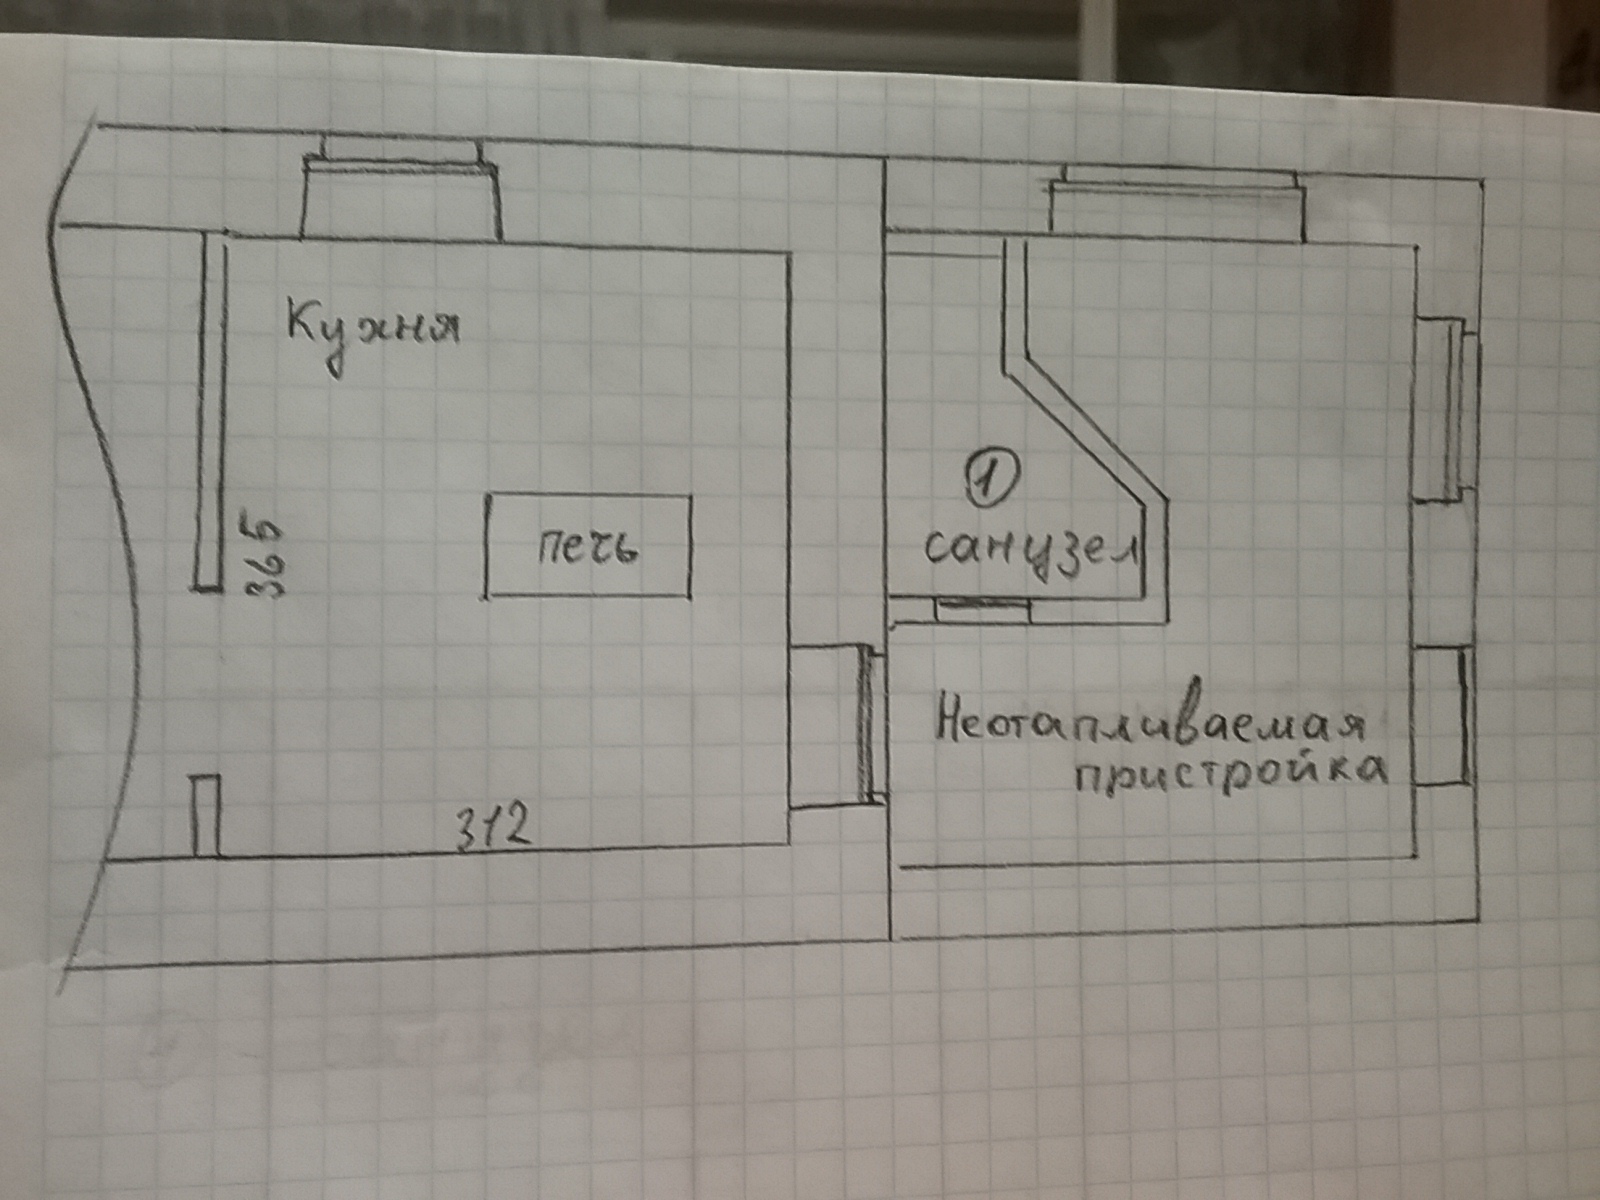 Кухня
365
печь
312
1
санузел
Неотапливаемая
пристройка